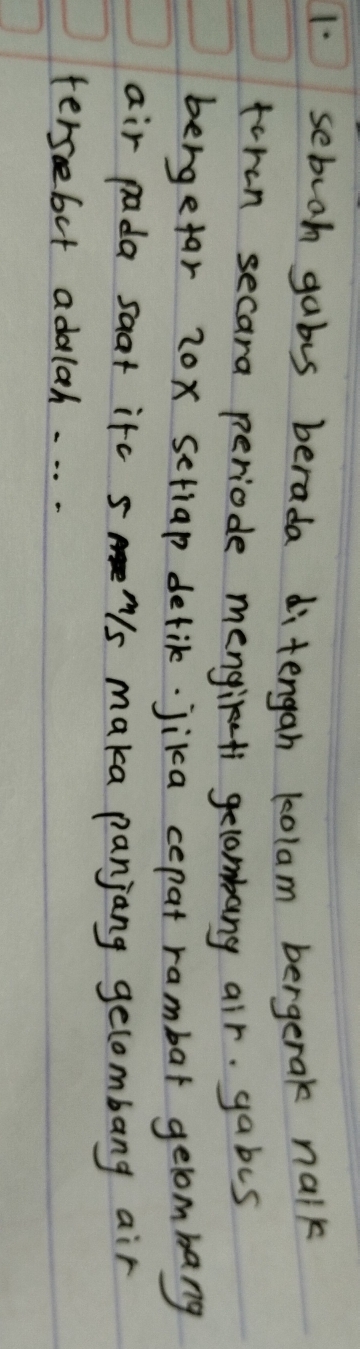 1. sebuah gabus berada ditengah kolam bergerak naik
turun secara periode mengikuti gelombang air. gabus
bergetar 20x setiap detik. jika cepat rambat gelombang
air pada saat itu 5 m/s maka panjang gelombang air
tersebut adalah ....